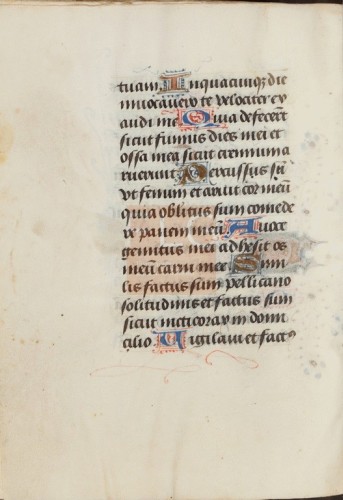 tuam In quacumq; die
invocavero te velociter ex
audi me Quia defecerūt
sicut fumus dies mei et
ossa mea sicut cremium a
ruerunt Percussus sū
vt fenum et aruit cor meū
quia oblitus sum comede
re panem meū A voce
gemitus mei adhesit os
meū carni mee Simi
lis factus sum pellicano
solitudinis et factus sum
sicut nicticorax in domi
cilio Vigilavi et factꝰ